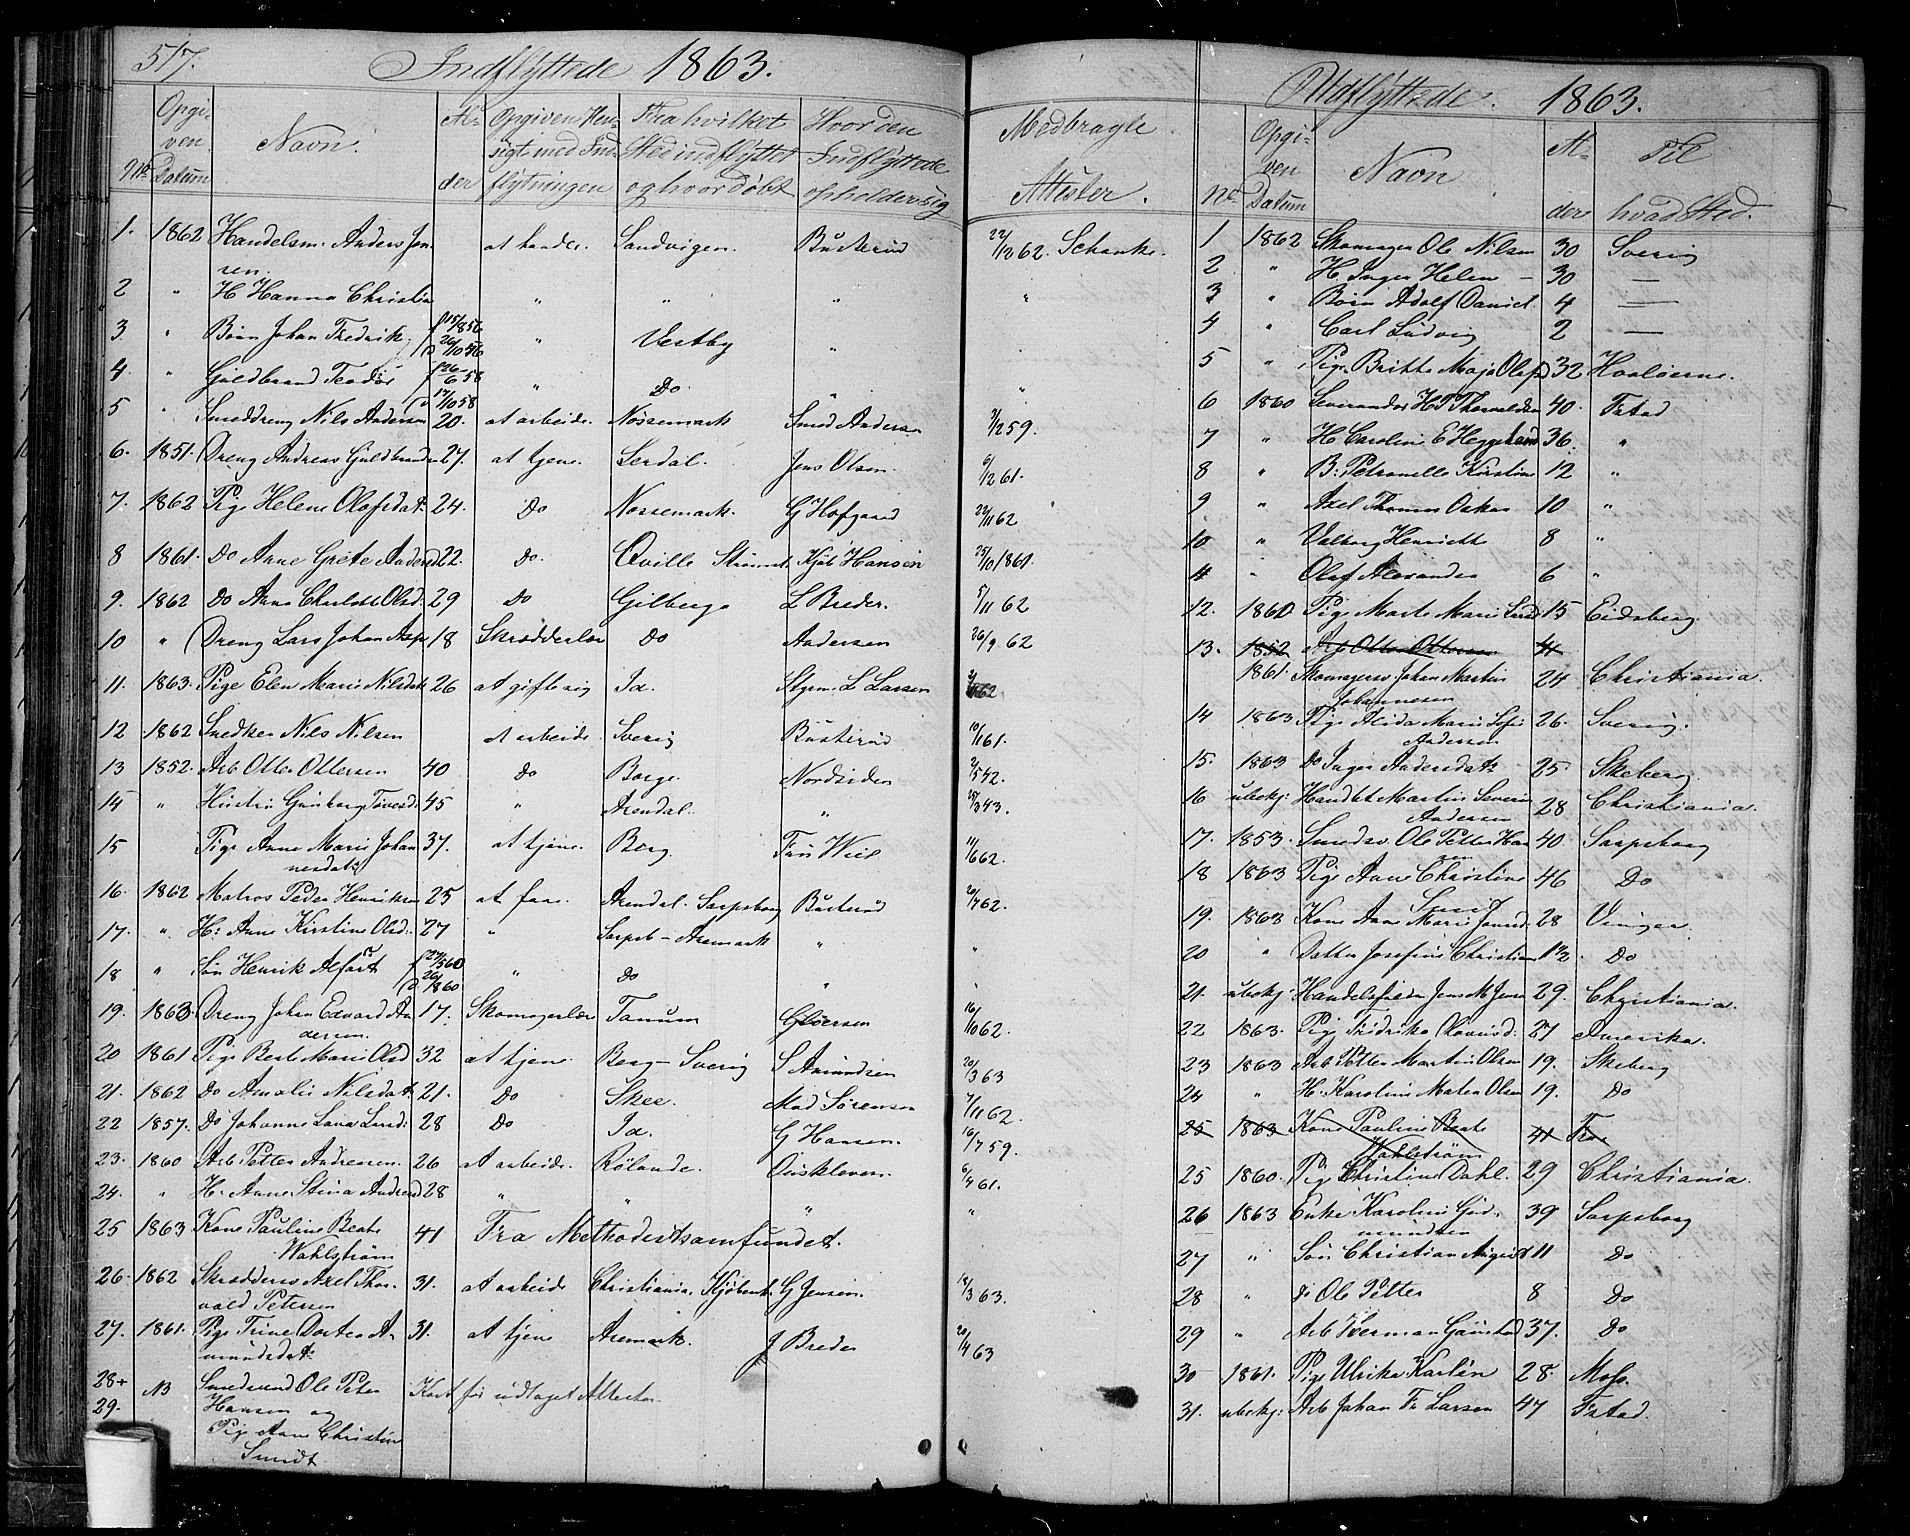 517.
Indflyttede 1863.
No Opgiven Datum Navn. Alder Opgiven Hensigt med Indflytningen Fra hvilket Sted indflyttet og hvor døbt Hvor den Indflyttede opholder sig Medbragte Attester.
1. 1862 Handelsm. Anders Jensen. at handle. Sandvigen. Busterud 22/12 62. Schanke.
2 " H. Hanna Christin " " " "
3 " Børn Johan Fredrik f 15/8 56 D 26/10 56 " Vestby "
4 " Guldbrand Teodor f 26/6 58 D 17/10 58 " Do "
5 " Smeddreng Nils Andersen 20. at arbeide. Nössemark Smed Andersen 2/12 59.
6. 1851. Dreng Andreas Guldbrands 27. at tjene. Serdal. Jens Olsen. 6/12 61.
7. 1862 Pige Helene Olafsdat. 24. Do Nössemark. G Hofgaard 22/11 62
8 1861. Do Anne Grete Andersd 22. Do. Qville Strömst. Kjöb Hansen 25/10 1861.
9. 1862 Do Anne Charlotte Olsd. 29 Do Gilberga L Breder. 5/11 62
10 " Dreng Lars Johan Asp 18 Skrædderlær Do Andersen 26/9 62
11. 1863. Pige Elen Marie Nilsdat 26 at gifte sig Id. Styrm. L Larsen 62
12 1862 Snedker Nils Nilsen at arbeide. Sverig Busterud 10/11 61.
13 1852. Arb Otter Ottersen 40 Do Borge. Nordsiden 2/5 42.
14 " Hustru Gunborg Tovesd. 45 " Arendal. " 25/3 43.
15 Pige Anne Marie Johannesdat. 37. at tjene. Berg. Fru Wiel 11/6 62.
16. 1862 Matros Peder Henriksen 25 at fare. Arendal. Sarpsborg Busterud 20/7 62.
17. " H: Anne Kirstine Olsd. 27 " Sarpsb - Aremark " "
18 " Søn Henrik Alfart f 27/5 60 D 26/8 60 " Do " "
19. 1863 Dreng Johan Edvard Andersen. 17. Skomagerlær Tanum Gløersen 16/10 62.
20 1861 Pige Berte Marie Olsd 32 at tjene Berg - Sverig S Amundsen 20/3 63
21. 1862 Do Amalie Nilsdat. 21. Do Skee. Mad Sørensen 7/11 62.
22 1857. Do Johanne Lena Larsd. 28 Do Id. G Hansen. 16/7 59.
23. 1860 Arb Petter Andreasen. 26 at arbeide. Rølande. Oisekleven. 6/4 61.
24. " H: Anne Stina Andersd 28 " " " "
25 1863 Kone Pauline Beate Wahlstrøm 41 Fra Methodistsamfundet.
26. 1862 Skræddersv Axel Thorvald Petersen 31. at arbeide Christiania. Kjøbenh. G Jensen. 18/3 63.
27. 1861. Pige Trine Dortea Amundsdat. 31. at tjene Aremark. J Breder 20/4 63
28+29. NB Smedsvend Ole Peter Hansen og Pige Anne Christine Smidt Kort før udtaget Attester.
Udflyttede. 1863.
No Opgiven Datum Navn Alder Til hvad Sted.
1 1862 Skomager Ole Nilsen 30 Sverig
2 " H. Inger Helene 30 —
3 " Børn Adolf Daniel 4 —
4 " Carl Ludvig 2 —
5 " Pige Britte Maja Olafsd 32 Hvaløerne.
6 1860 Leverandør H. T. Thorvaldsen 40. Fstad
7 " H Caroline E. Heggelund 36. "
8 " B: Petronelle Kirstine 12 "
9 " Axel Thomas Oskar 10 "
10 " Valborg Henriette 8 "
11 " Olaf Alexander 6 "
12. 1860 Pige Marte Marie Lund 15 Eidsberg
13. 1852 Arb Otter Ottersen 41
1861. Skomagersv Johan Martin Johannesen 24 Christiania.
14 1863 Pige Alida Marie Sofie Andersen 26. Sverig.
15. 1863 Do Inger Andersdat. 25 Skeberg.
16 ubekj: Handlbt Martin Severin Andersen 28 Christiania.
17. 1853. Smedsv Ole Petter Hansen 40. Sarpsborg
18 1863 Pige Anne Christine Smidt 46 Do
19. 1863 Kone Ane Marie Jonsd. 28 Vinger.
20 " Datter Josefine Christian 12 Do
21. ubekj: Handelsfuldm Jens M Jensen 29. Christiania.
22 1863. Pige Fredrika Olausd. 27 Amerika.
23 1863 Arb Petter Martin Olsen 19. Skeberg
24 " H. Karoline Matea Olsen 19. Do
25 1863 Kone Pauline Beate Wahlstrøm 41 Fra
25 1860. Pige Christine Dahl. 29 Christiania.
26 1863 Enke Karoline Gudmundsen 39 Sarpsborg
27 " Søn Christian August 11 Do
28 " Do Ole Petter 8 Do
29 " Arb Herman Gunstad 37. Do
30 1861. Pige Ulrika Karlsen 28. Moss.
31. ubekj. Arb Johan Fr Larsen 47 Fstad.